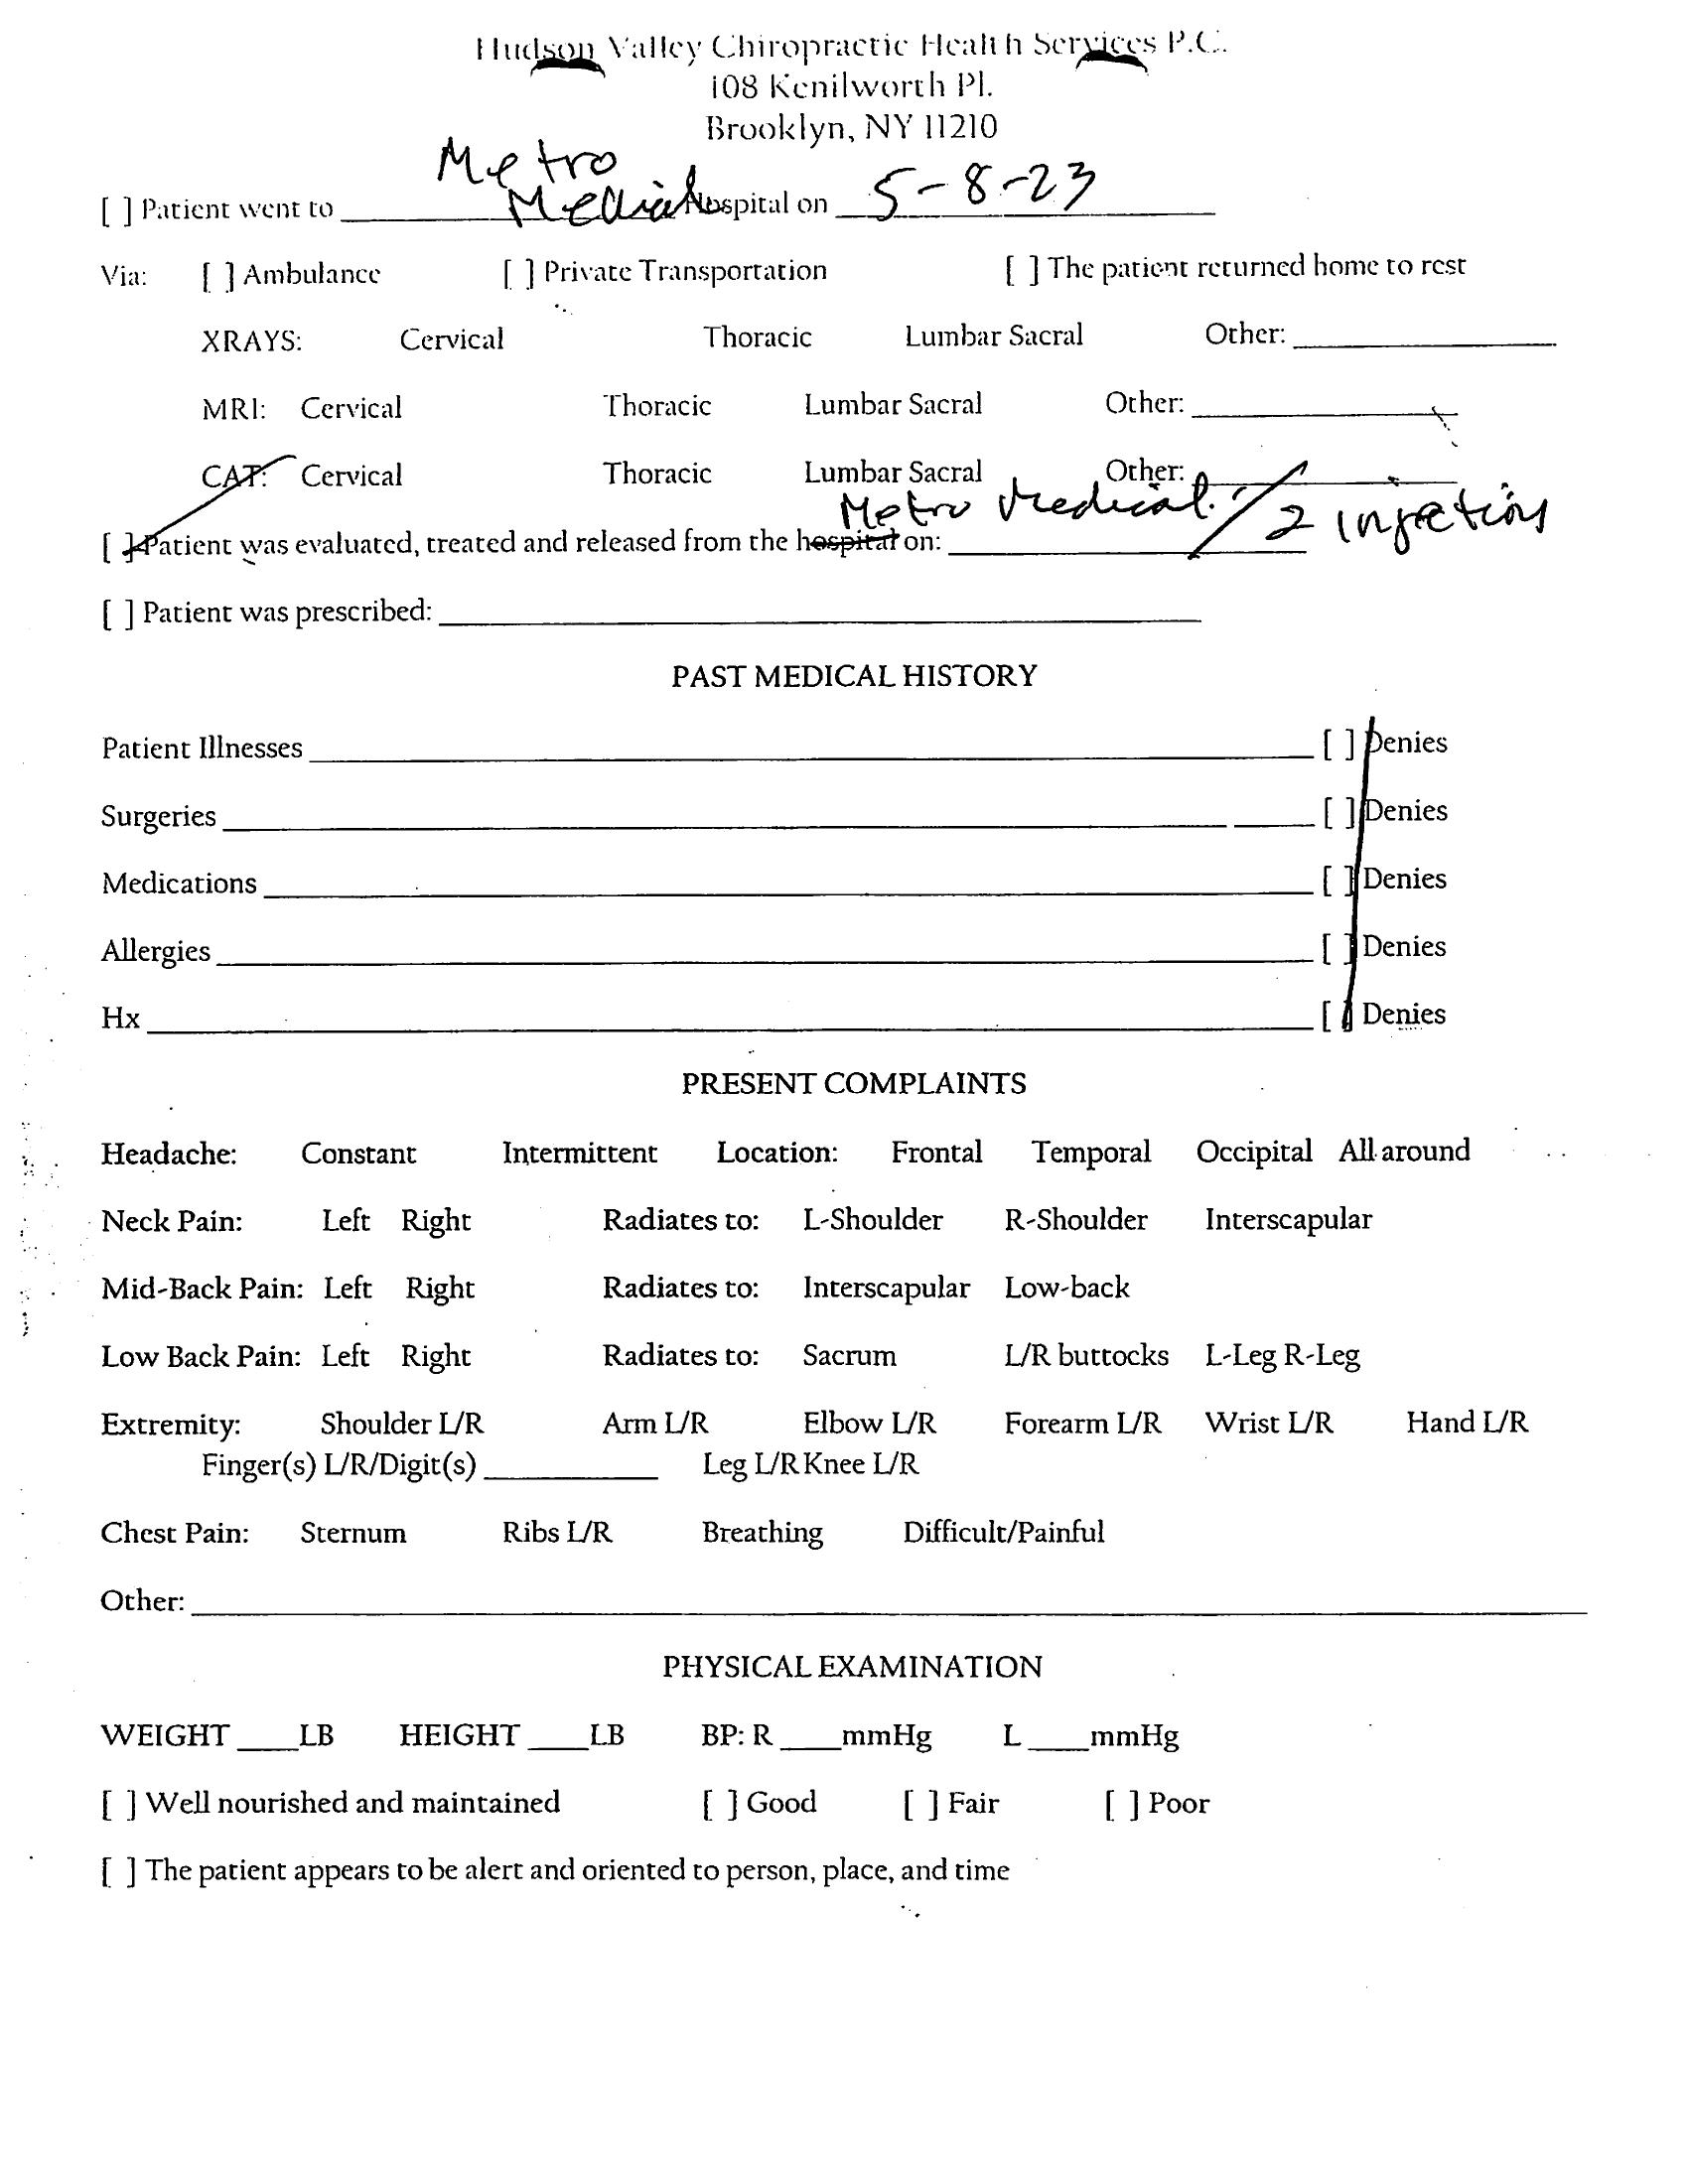 Hudson Valley Chiropractic Health Services P.C.
108 Kenilworth Pl.
Brooklyn, NY 11210
Metro
[ ] Patient went to Medical Hospital on 5-8-23
Via: [ ] Ambulance [ ] Private Transportation [ ] The patient returned home to rest
XRAYS: Cervical Thoracic Lumbar Sacral Other:
MRI: Cervical Thoracic Lumbar Sacral Other:
CAT: Cervical Thoracic Lumbar Sacral Other:
Metro Medical. / 2 injections
[ ] Patient was evaluated, treated and released from the hospital on:
[ ] Patient was prescribed:
PAST MEDICAL HISTORY
Patient Illnesses [ ] Denies
Surgeries [ ] Denies
Medications [ ] Denies
Allergies [ ] Denies
Hx [ ] Denies
PRESENT COMPLAINTS
Headache: Constant Intermittent Location: Frontal Temporal Occipital All around
Neck Pain: Left Right Radiates to: L-Shoulder R-Shoulder Interscapular
Mid-Back Pain: Left Right Radiates to: Interscapular Low-back
Low Back Pain: Left Right Radiates to: Sacrum L/R buttocks L-Leg R-Leg
Extremity: Shoulder L/R Arm L/R Elbow L/R Forearm L/R Wrist L/R Hand L/R
Finger(s) L/R/Digit(s) Leg L/R Knee L/R
Chest Pain: Sternum Ribs L/R Breathing Difficult/Painful
Other:
PHYSICAL EXAMINATION
WEIGHT ___LB HEIGHT ___LB BP: R ___mmHg L ___mmHg
[ ] Well nourished and maintained [ ] Good [ ] Fair [ ] Poor
[ ] The patient appears to be alert and oriented to person, place, and time